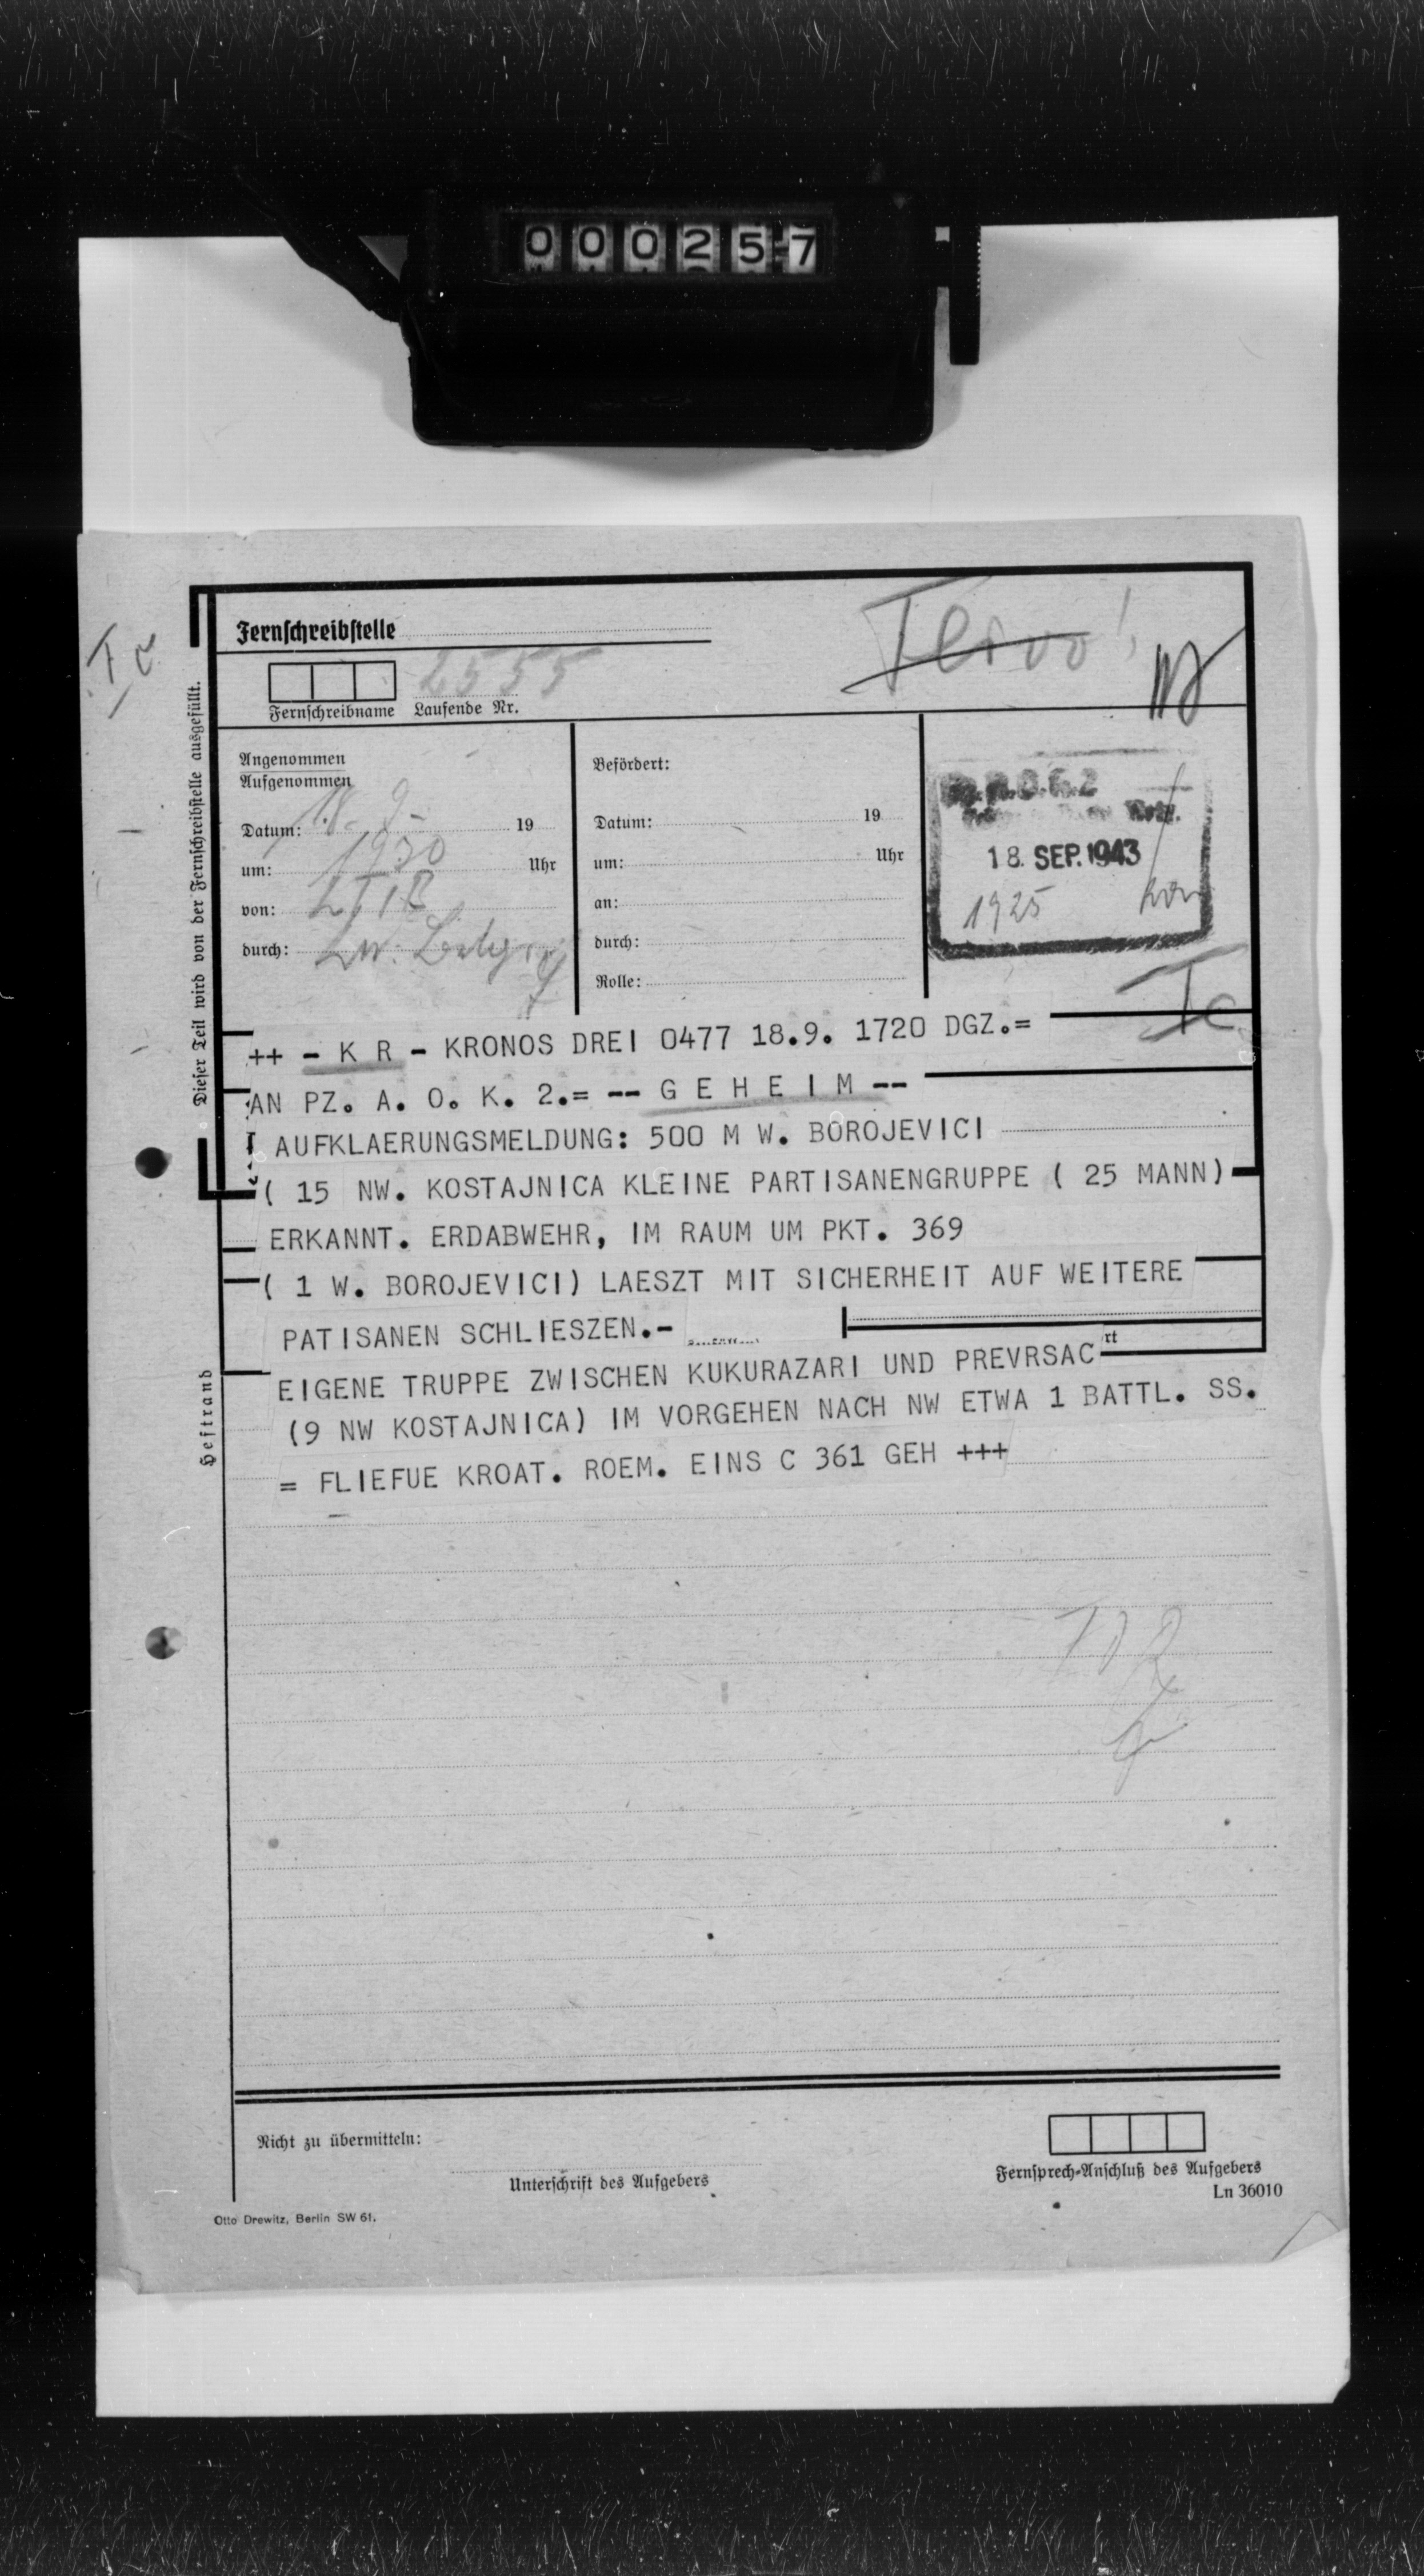 000257
Fernschreibstelle
2555
Fernschreibname Laufende Nr.
Ic
Dieser Teil wird von der Fernschreibstelle ausgefüllt.
Angenommen
Aufgenommen
Datum: 18. 9. 19
um: 1930 Uhr
von:
durch:
Befördert:
Datum: 19
um: Uhr
an:
durch:
Rolle:
18. SEP. 1943
1925
Ic
++ - K R - KRONOS DREI 0477 18.9. 1720 DGZ.=
AN PZ. A. O. K. 2.= -- G E H E I M --
AUFKLAERUNGSMELDUNG: 500 M W. BOROJEVICI
( 15 NW. KOSTAJNICA KLEINE PARTISANENGRUPPE ( 25 MANN)
ERKANNT. ERDABWEHR, IM RAUM UM PKT. 369
( 1 W. BOROJEVICI) LAESZT MIT SICHERHEIT AUF WEITERE
PATISANEN SCHLIESZEN.-
rt
EIGENE TRUPPE ZWISCHEN KUKURAZARI UND PREVRSAC
(9 NW KOSTAJNICA) IM VORGEHEN NACH NW ETWA 1 BATTL. SS.
= FLIEFUE KROAT. ROEM. EINS C 361 GEH +++
Heftrand
Nicht zu übermitteln:
Unterschrift des Aufgebers
Fernsprech-Anschluß des Aufgebers
Ln 36010
Otto Drewitz, Berlin SW 61.